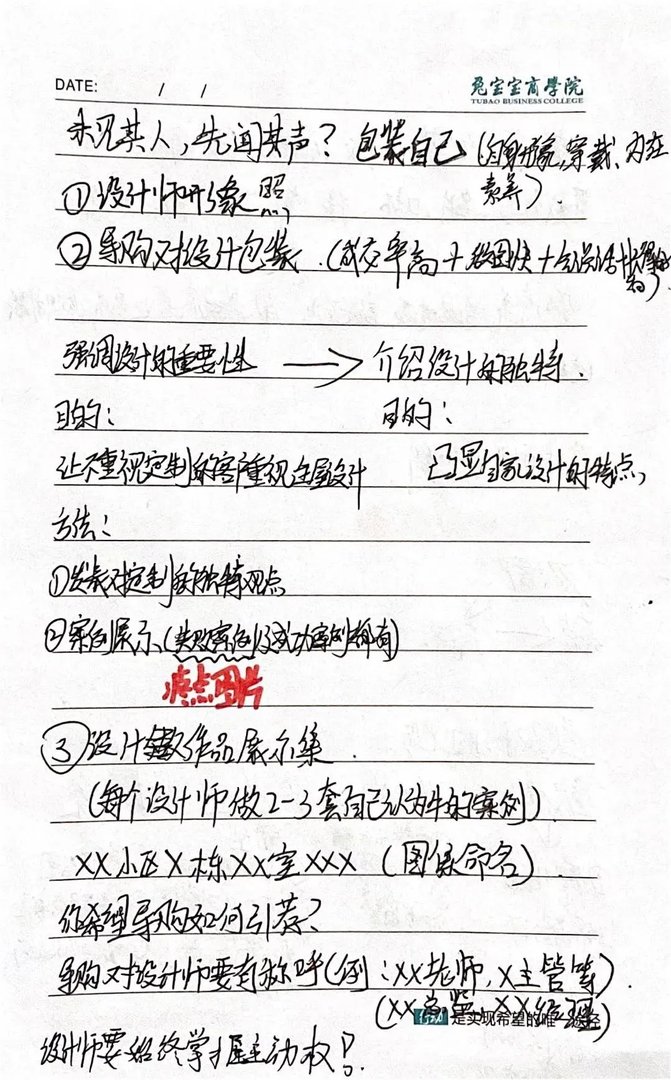 DATE: / /
兔宝宝商學院
TUBAO BUSINESS COLLEGE
未见其人，先闻其声？ 包装自己（自身形象，穿戴、内在
素养）.
①设计师形象照
②导购对设计包装.（成交率高＋
强调设计的重要性 → 介绍设计的独特.
目的： 目的：
让不重视定制的客户重视全屋设计 凸显自家设计的特点，
方法：
①发表对定制的独特观点
②案例展示、（失败案例及成功案例都有）
痛点图片
③设计 作品展示集.
（每个设计师做2-3套自己认为牛的案例）.
XX小区X栋XX室XXX （图像命名）.
你希望导购如何引荐？
导购对设计师要有称呼（例：XX老师，X主管等）
（XX总监、XX经理）
行动 是实现希望的唯一途径
设计师要始终掌握主动权！